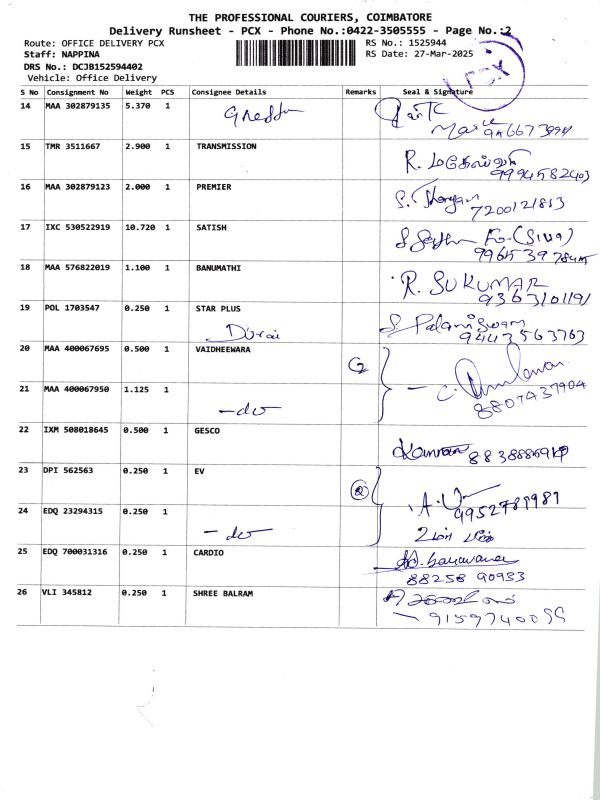 THE PROFESSIONAL COURIERS, COIMBATORE
Delivery Runsheet - PCX - Phone No.:0422-3505555 - Page No.:2
Route: OFFICE DELIVERY PCX
RS No.: 1525944
Staff: NAPPINA
RS Date: 27-Mar-2025
DRS No.: DCJB152594402
Vehicle: Office Delivery
PCX
S No Consignment No Weight PCS Consignee Details Remarks Seal & Signature
14 MAA 302879135 5.370 1
15 TMR 3511667 2.900 1 TRANSMISSION
9994582403
16 MAA 302879123 2.000 1 PREMIER
7200121813
17 IXC 530522919 10.720 1 SATISH
(SIVA)
18 MAA 576822019 1.100 1 BANUMATHI
R. SUKUMAR
9363101191
19 POL 1703547 0.250 1 STAR PLUS
Durai
S. Palaniswam
9443563763
20 MAA 400067695 0.500 1 VAIDHEEWARA
2
21 MAA 400067950 1.125 1
-do
8807437904
22 IXM 508018645 0.500 1 GESCO
23 DPI 562563 0.250 1 EV
2
9952789981
24 EDQ 23294315 0.250 1
-do
25 EDQ 700031316 0.250 1 CARDIO
88258 90933
26 VLI 345812 0.250 1 SHREE BALRAM